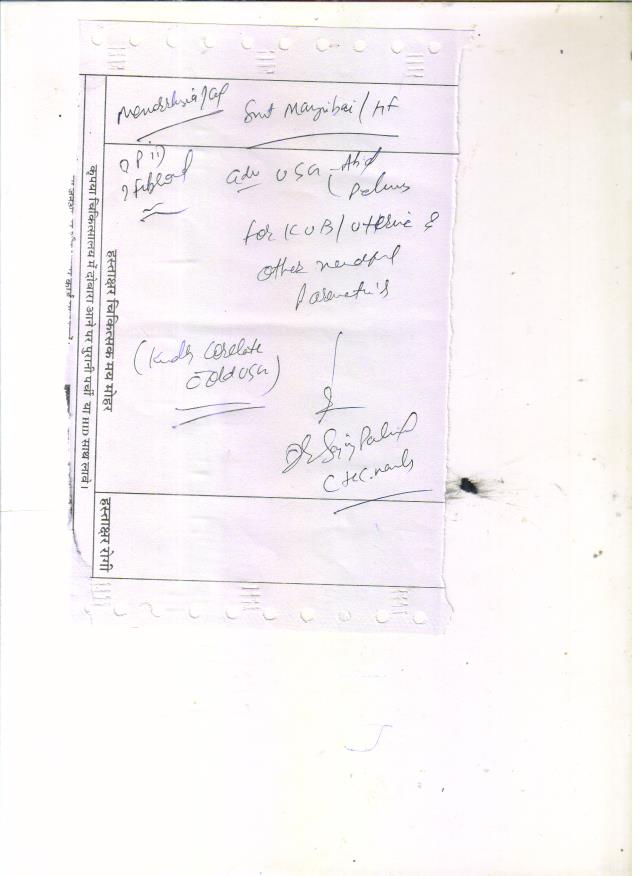 Menorrhagia /
Smt Mangibai / HF
? PID
? Fibroid
adv USG Abd
Pelvis
for KUB / Uterine &
other needful
Parametris
(Kindly Corelate
c̄ Old USG)
Dr
CHC
हस्ताक्षर चिकित्सक मय मोहर
हस्ताक्षर रोगी
कृपया चिकित्सालय में दोबारा आने पर पुरानी पर्ची या HID साथ लावें।